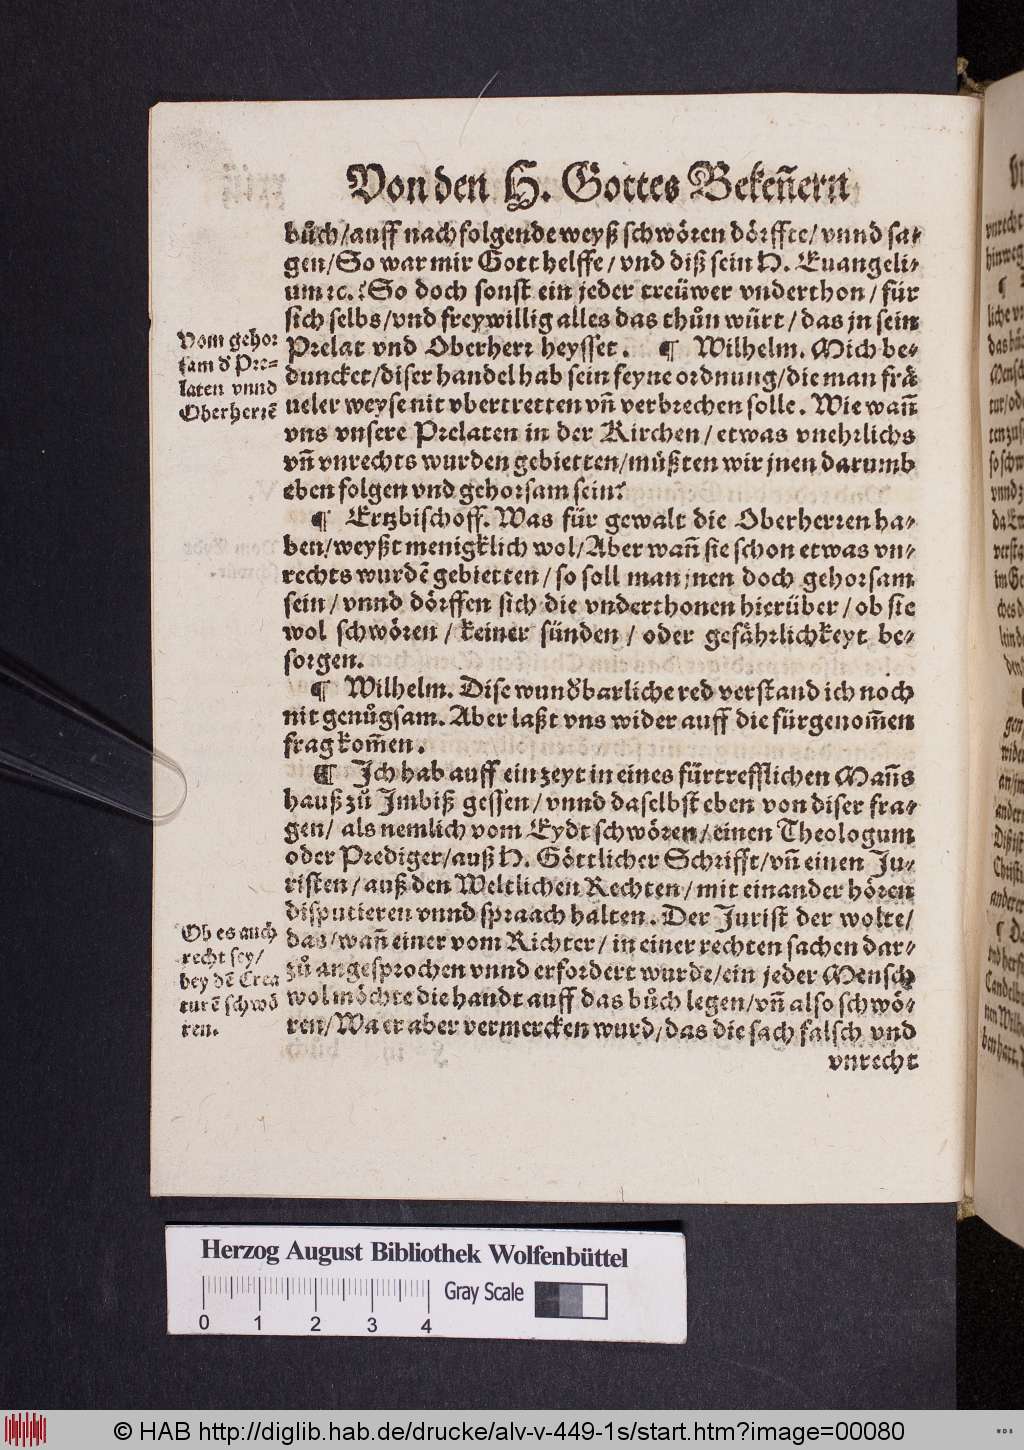 Von den H. Gottes Bekeñern
bůch/auff nachfolgende weyß schwören dörffte/vnnd sa⸗
gen/So war mir Gott helffe/vnd diß sein H. Euangeli⸗
um ꝛc.? So doch sonst ein jeder treüwer vnderthon/für
sich selbs/vnd freywillig alles das thůn würt/das jn sein
Prelat vnd Oberherr heysset. ¶ Wilhelm. Mich be⸗
duncket/diser handel hab sein feyne ordnung/die man frä
ueler weyse nit vbertretten vñ verbrechen solle. Wie wañ
vns vnsere Prelaten in der Kirchen/etwas vnehrlichs
vñ vnrechts wurden gebietten/müßten wir jnen darumb
eben folgen vnd gehorsam sein?
Vom gehor
sam d' Pre⸗
laten vnnd
Oberherrē
¶ Ertzbischoff. Was für gewalt die Oberherren ha⸗
ben/weyßt menigklich wol/Aber wañ sie schon etwas vn⸗
rechts wurdē gebietten/so soll man jnen doch gehorsam
sein/vnnd dörffen sich die vnderthonen hierüber/ob sie
wol schwören/keiner sünden/oder gefährlichkeyt be⸗
sorgen.
¶ Wilhelm. Dise wund'barliche red verstand ich noch
nit genůgsam. Aber laßt vns wider auff die fürgenom̃en
frag kom̃en.
¶ Ich hab auff ein zeyt in eines fürtrefflichen Mañs
hauß zů Imbiß gessen/vnnd daselbst eben von diser fra⸗
gen/als nemlich vom Eydt schwören/einen Theologum
oder Prediger/auß H. Göttlicher Schrifft/vñ einen Ju⸗
risten/auß den Weltlichen Rechten/mit einander hören
disputieren vnnd spraach halten. Der Jurist der wolte/
das/wañ einer vom Richter/in einer rechten sachen dar⸗
zů angesprochen vnnd erfordert wurde/ein jeder Mensch
wol möchte die handt auff das bůch legen/vñ also schwö⸗
ren/Wa er aber vermercken wurd/das die sach falsch vnd
Ob es auch
recht sey/
bey dē Crea
turē schwö
ren.
vnrecht
Herzog August Bibliothek Wolfenbüttel
Gray Scale
0 1 2 3 4
© HAB http://diglib.hab.de/drucke/alv-v-449-1s/start.htm?image=00080